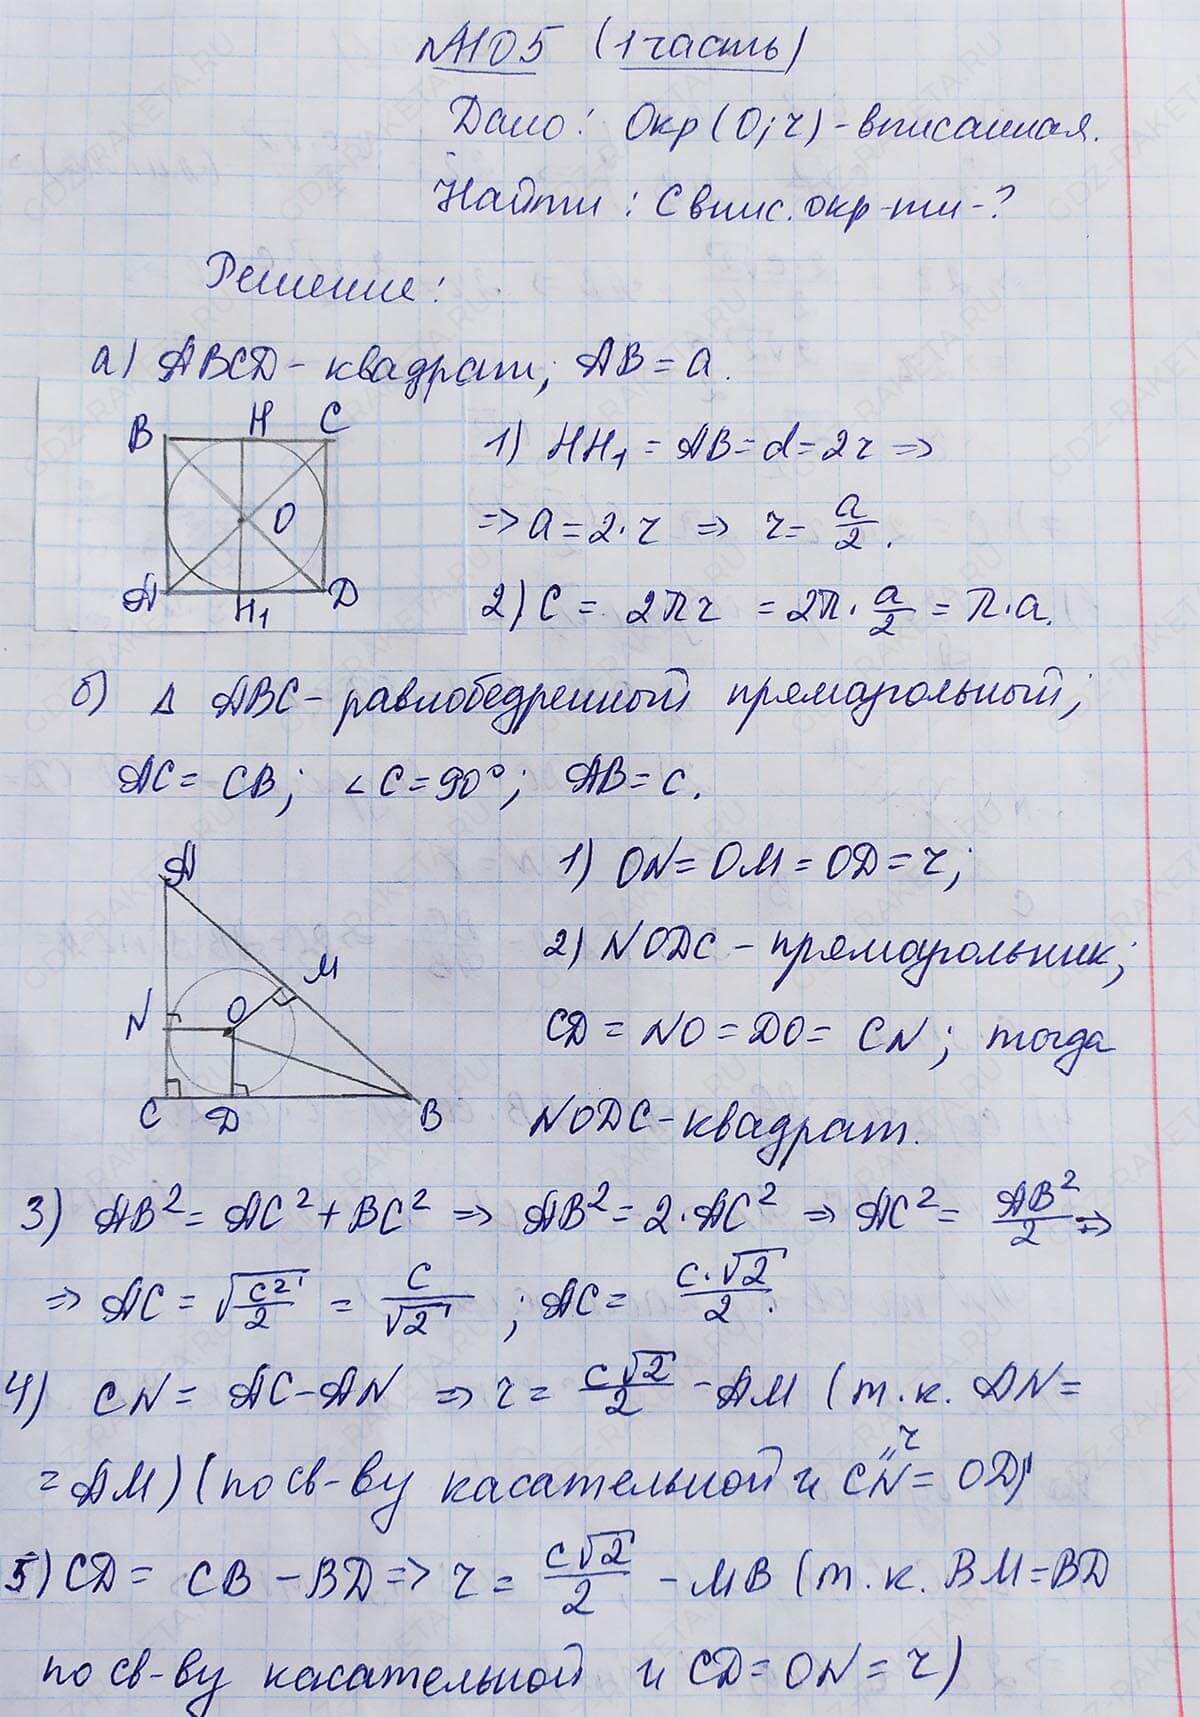 №1105 (1 часть)
Дано: Окр (O; r) - вписанная.
Найти: C впис. окр-ти - ?
Решение:
а) ABCD - квадрат; AB = a.
B H C
O
A H₁ D
1) HH₁ = AB = d = 2r ⇒
⇒ a = 2·r ⇒ r = a/2.
2) C = 2πr = 2π · a/2 = π·a.
б) Δ ABC - равнобедренный прямоугольный;
AC = CB; ∠C = 90°; AB = c.
A
M
N O
C D B
1) ON = OM = OD = r;
2) NODC - прямоугольник;
CD = NO = DO = CN; тогда
NODC - квадрат.
3) AB² = AC² + BC² ⇒ AB² = 2·AC² ⇒ AC² = AB²/2 ⇒
⇒ AC = √(c²/2) = c/√2; AC = c·√2/2.
4) CN = AC - AN ⇒ r = c√2/2 - AM (т.к. AN =
= AM) (по св-ву касательной и CN = OD)
"r
5) CD = CB - BD ⇒ r = c√2/2 - MB (т.к. BM = BD
по св-ву касательной и CD = ON = r)
GDZ-RAKETA.RU